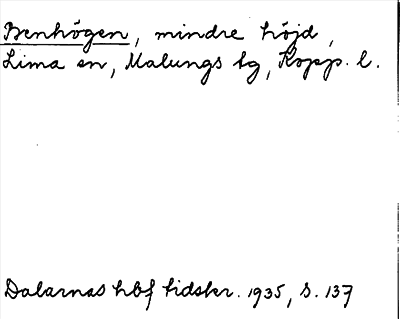 Benhögen, mindre höjd,
Lima sn, Malungs tg, Kopp. l.
Dalarnas hbf tidskr. 1935, s. 137